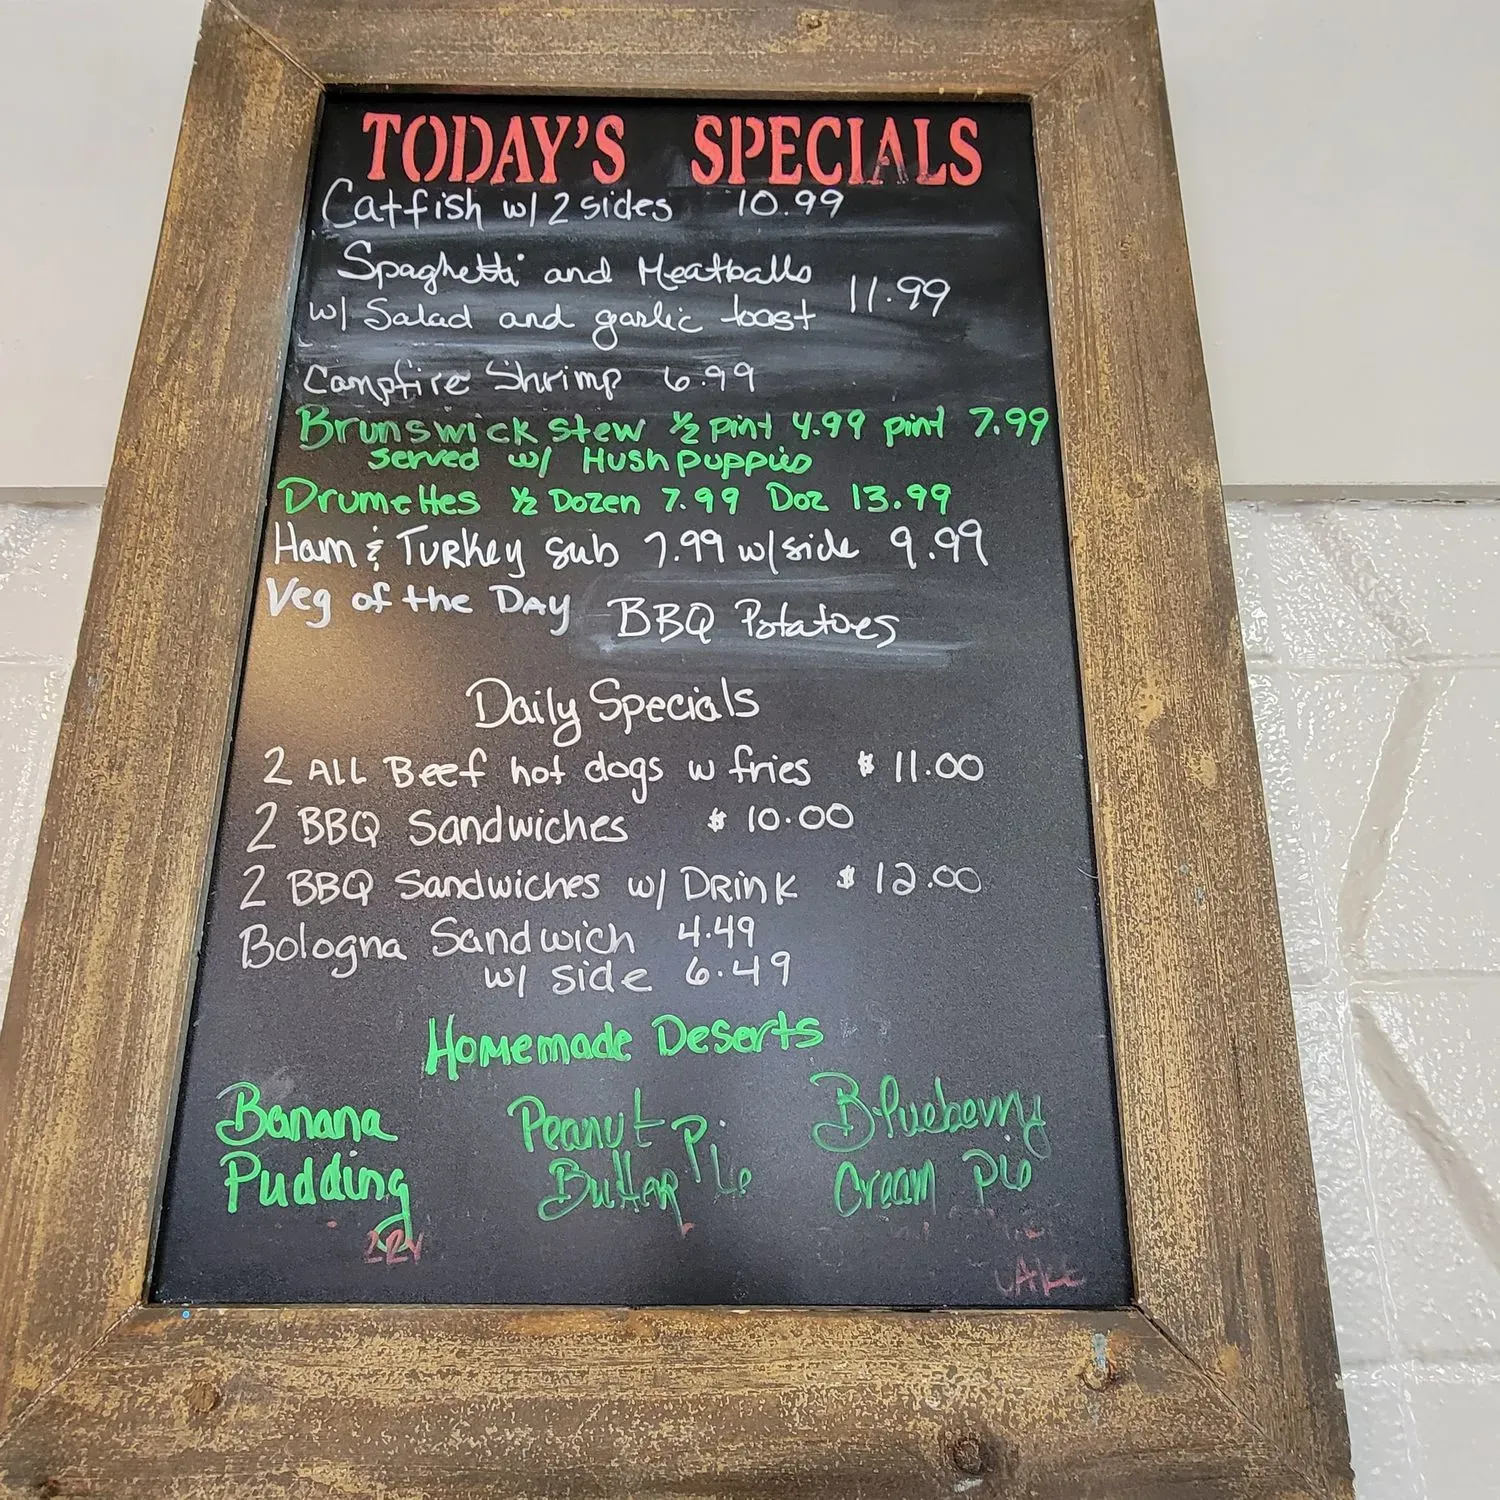 TODAY'S SPECIALS
Catfish w/ 2 sides 10.99
Spaghetti and Meatballs 11.99
w/ Salad and garlic toast
Campfire Shrimp 6.99
Brunswick Stew ½ pint 4.99 pint 7.99
served w/ Hushpuppies
Drumettes ½ Dozen 7.99 Doz 13.99
Ham & Turkey Sub 7.99 w/side 9.99
Veg of the Day BBQ Potatoes
Daily Specials
2 ALL Beef hot dogs w fries $ 11.00
2 BBQ Sandwiches $ 10.00
2 BBQ Sandwiches w/ Drink $ 12.00
Bologna Sandwich 4.49
w/ side 6.49
Homemade Deserts
Banana Peanut Blueberry
Pudding Butter Pie Cream Pie
CAKE